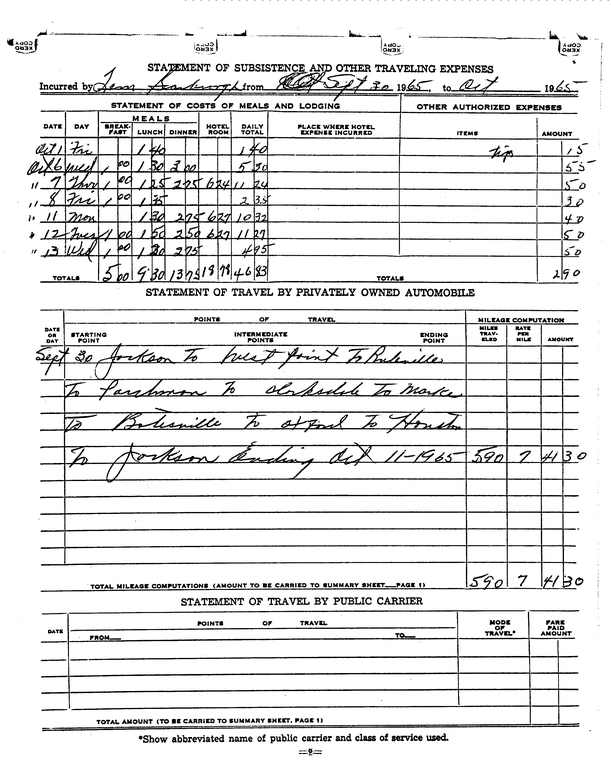 XERO COPY XERO COPY XERO COPY XERO COPY
STATEMENT OF SUBSISTENCE AND OTHER TRAVELING EXPENSES
Incurred by Tom Scarbrough from Sept 30 1965, to Oct 1965
STATEMENT OF COSTS OF MEALS AND LODGING OTHER AUTHORIZED EXPENSES
MEALS
DATE DAY BREAK-FAST LUNCH DINNER HOTEL ROOM DAILY TOTAL PLACE WHERE HOTEL EXPENSE INCURRED ITEMS AMOUNT
Oct 1 Fri 1 40 1 40 tips 15
Oct 6 Wed 1 00 1 50 3 00 5 50 55
" 7 Thur 1 00 1 25 2 75 6 24 11 24 50
" 8 Fri 1 00 1 35 2 35 30
" 11 Mon 1 30 2 75 6 27 10 32 40
" 12 Tues 1 00 1 50 2 50 6 27 11 27 50
" 13 Wed 1 00 1 20 2 75 4 95 50
TOTALS 5 00 9 30 13 75 18 78 46 83 TOTALS 2 90
STATEMENT OF TRAVEL BY PRIVATELY OWNED AUTOMOBILE
POINTS OF TRAVEL MILEAGE COMPUTATION
DATE OR DAY STARTING POINT INTERMEDIATE POINTS ENDING POINT MILES TRAV-ELED RATE PER MILE AMOUNT
Sept 30 Jackson To West Point To Ruleville
To Parchman To Clarksdale To Marks
To Batesville To Oxford To Houston
To Jackson Ending Oct 11-1965 590 7 41 30
TOTAL MILEAGE COMPUTATIONS (AMOUNT TO BE CARRIED TO SUMMARY SHEET PAGE 1) 590 7 41 30
STATEMENT OF TRAVEL BY PUBLIC CARRIER
DATE POINTS OF TRAVEL MODE OF TRAVEL* FARE PAID AMOUNT
FROM TO
TOTAL AMOUNT (TO BE CARRIED TO SUMMARY SHEET, PAGE 1)
*Show abbreviated name of public carrier and class of service used.